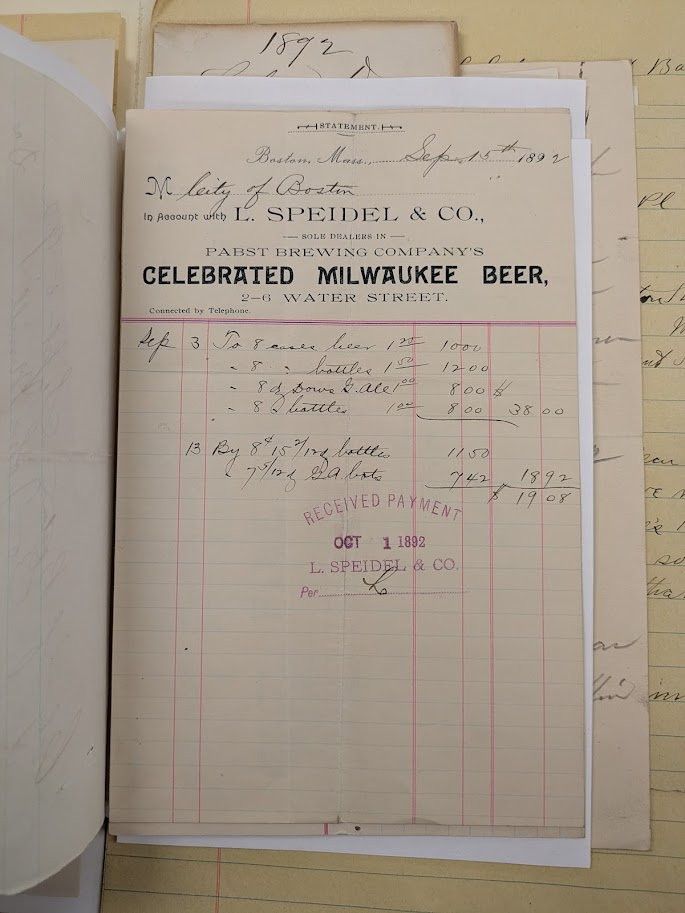 1892
STATEMENT.
Boston, Mass., Sep. 15th 1892
M City of Boston
In Account with L. SPEIDEL & CO.,
SOLE DEALERS IN
PABST BREWING COMPANY'S
CELEBRATED MILWAUKEE BEER,
2–6 WATER STREET.
Connected by Telephone.
Sep 3 To 8 cases beer 1 25 10 00
" 8 " bottles 1 50 12 00
" 8 d Dows G. Ale 1 00 8 00 $
" 8 d bottles 1 00 8 00 38 00
13 By 8 15 2/12 d bottles 11 50
" 7 5/12 d G A bots 7 42 18 92
$ 19 08
RECEIVED PAYMENT
OCT 1 1892
L. SPEIDEL & CO.
Per